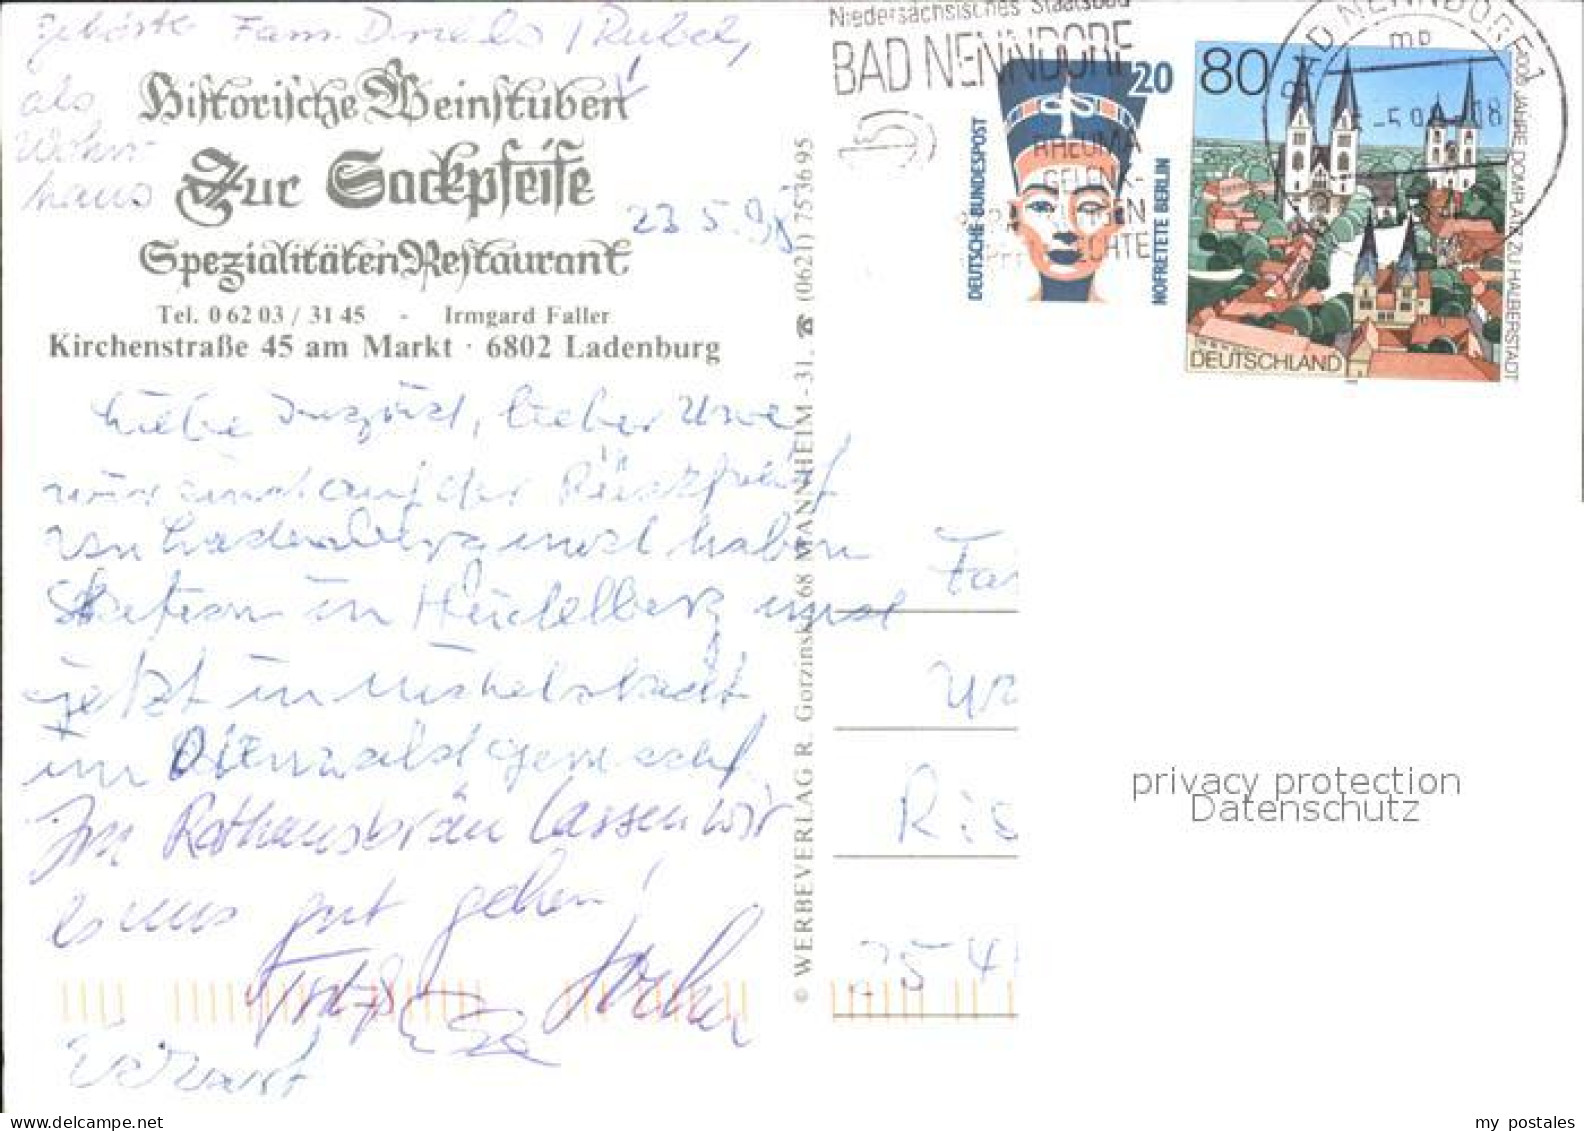 gehörte Fam.
als
Wohn
haus
Historische Weinstuben
Zur Sackpfeife
Spezialitäten Restaurant
23.5.98
Tel. 0 62 03 / 31 45 - Irmgard Faller
Kirchenstraße 45 am Markt · 6802 Ladenburg
Liebe Ingrid, lieber Uwe
wir sind auf der Rückfahrt
von Ladenburg und haben
Station in Heidelberg und
jetzt in Michelstadt
im Odenwald gemacht
Im Rathausbräu lassen wir
es uns gut gehen!
© WERBEVERLAG R. Gorzinski, 68 MANNHEIM - 31, ☎ (0621) 753695
Niedersächsisches Staatsbad
BAD NENNDORF
RHEUMA
GELENK
BAD NENNDORF 1
mp
20
DEUTSCHE BUNDESPOST
NOFRETETE BERLIN
80
DEUTSCHLAND
1000 JAHRE DOMPLATZ ZU HALBERSTADT
Fa
Ris
254
privacy protection
Datenschutz
my postales